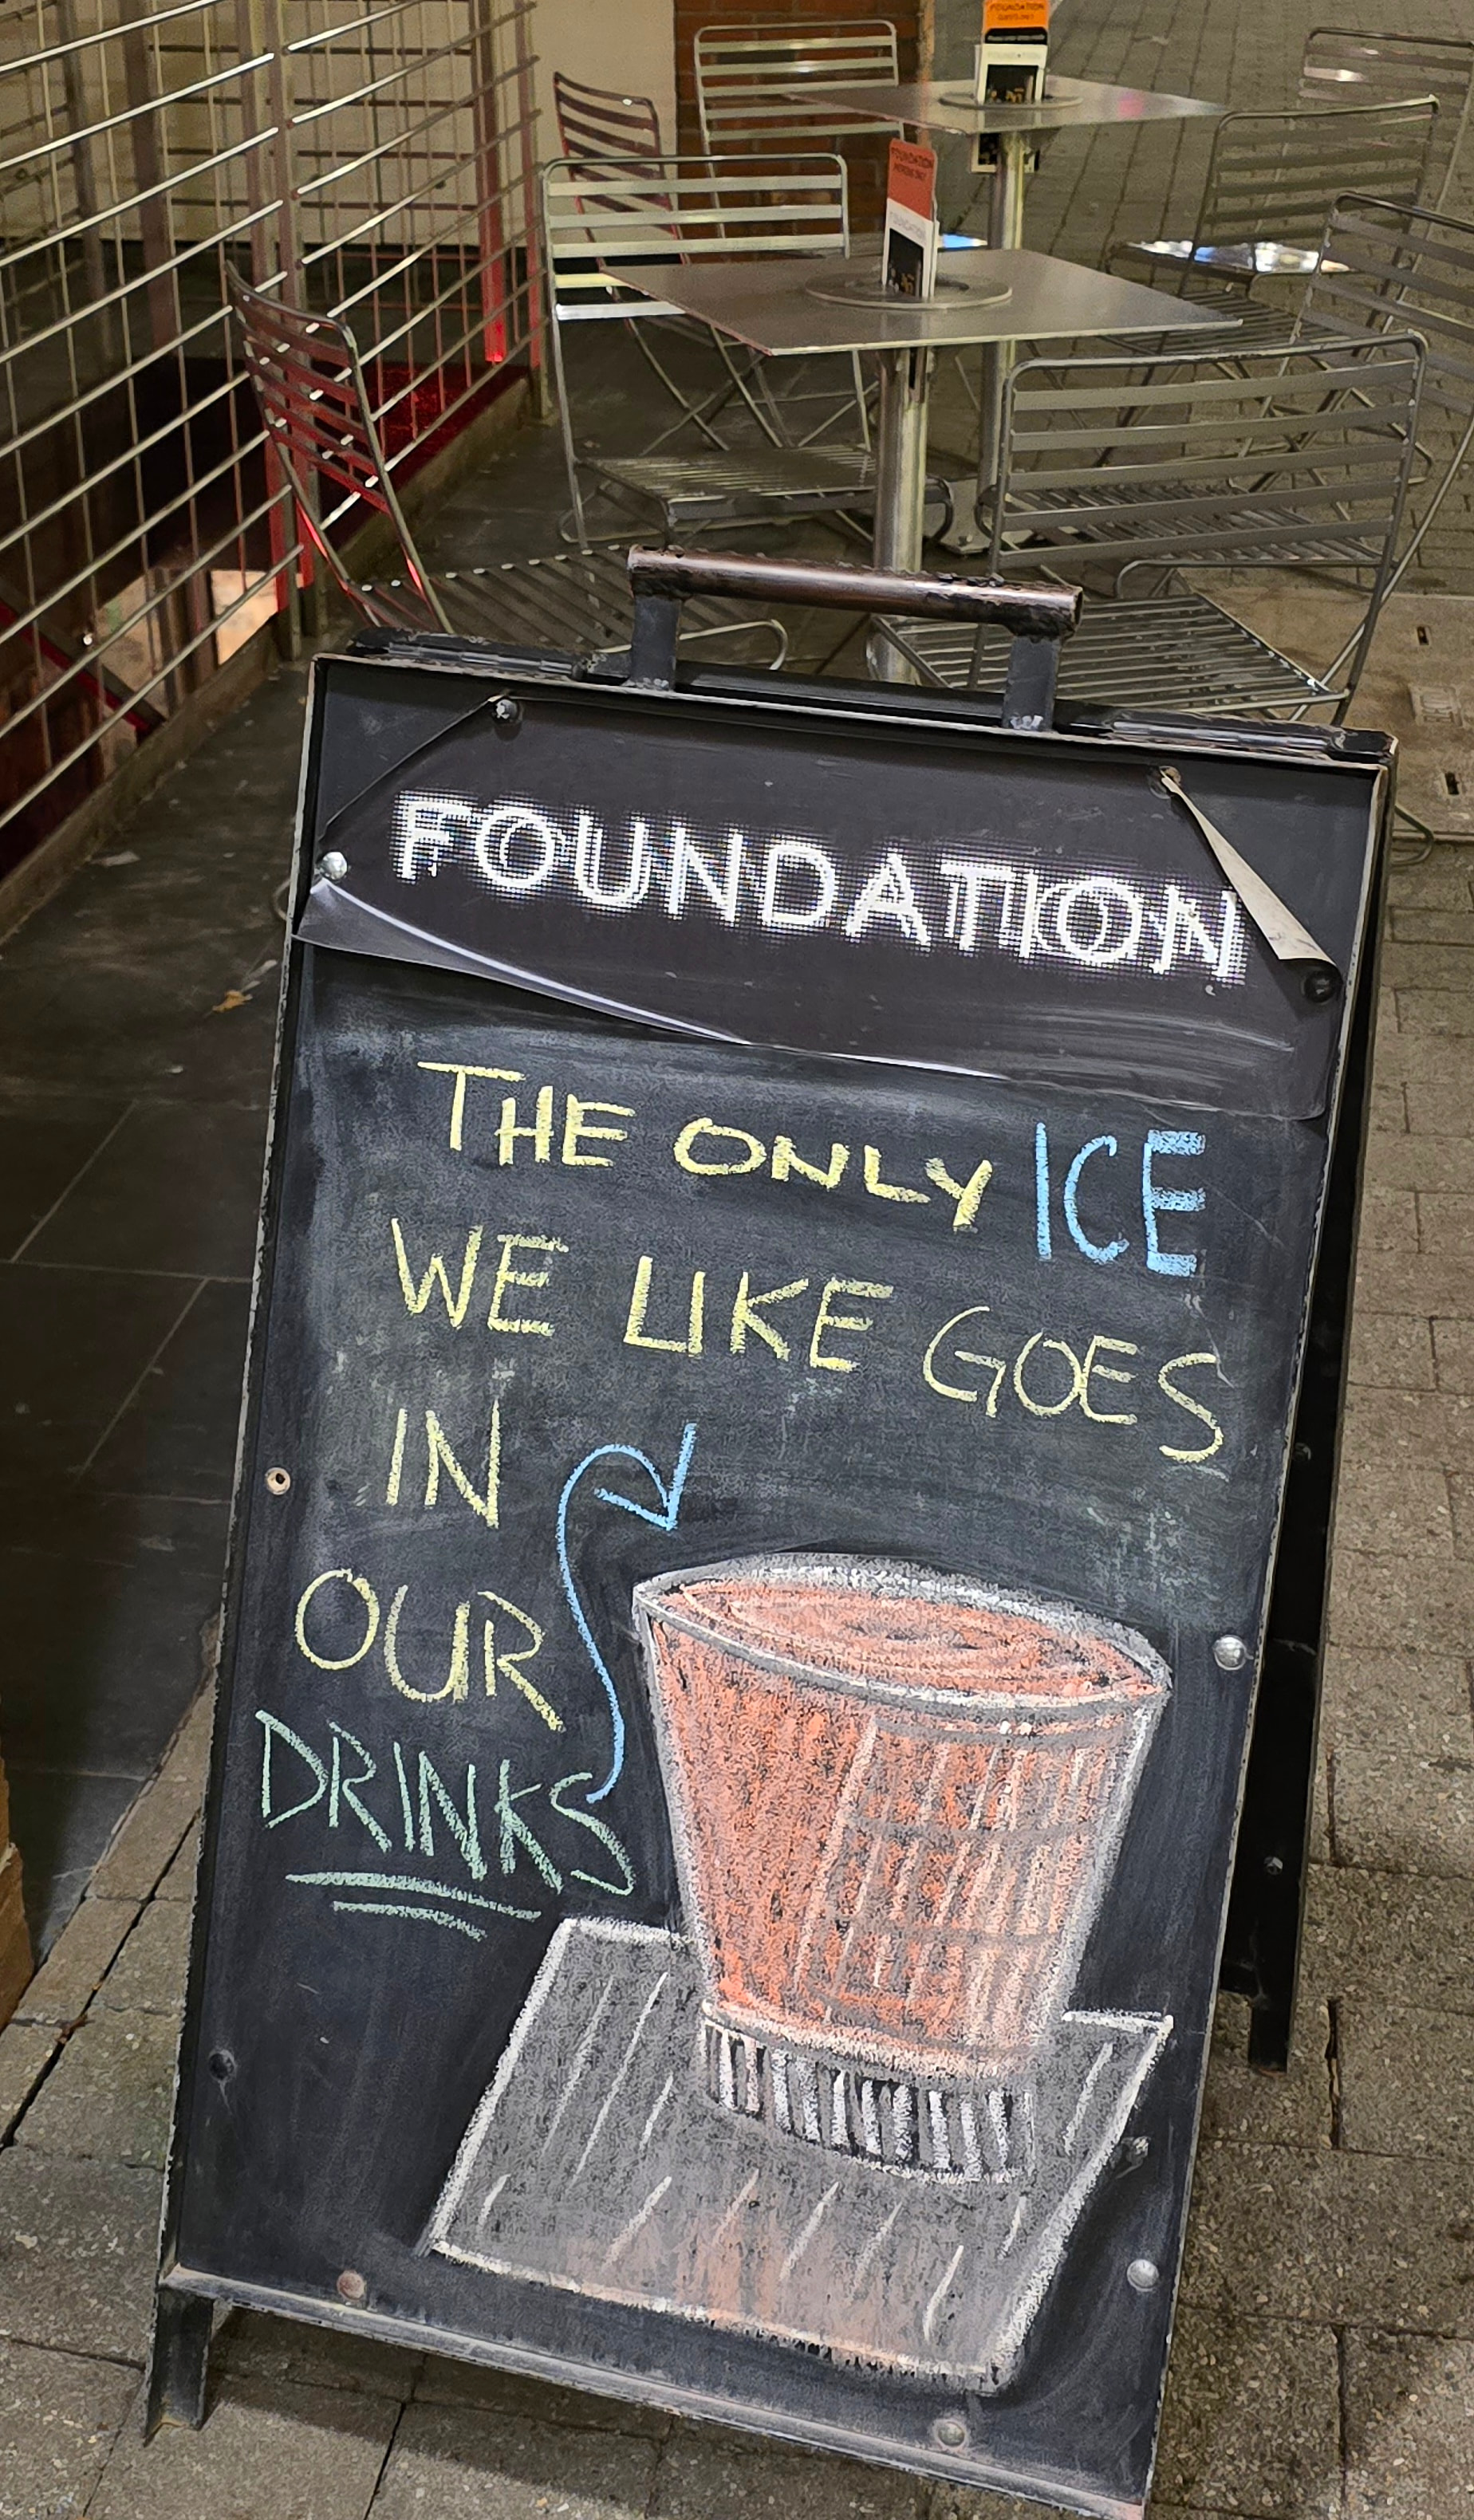 FOUNDATION
FOUNDATION
FOUNDATION
THE ONLY ICE
WE LIKE GOES
IN
OUR
DRINKS